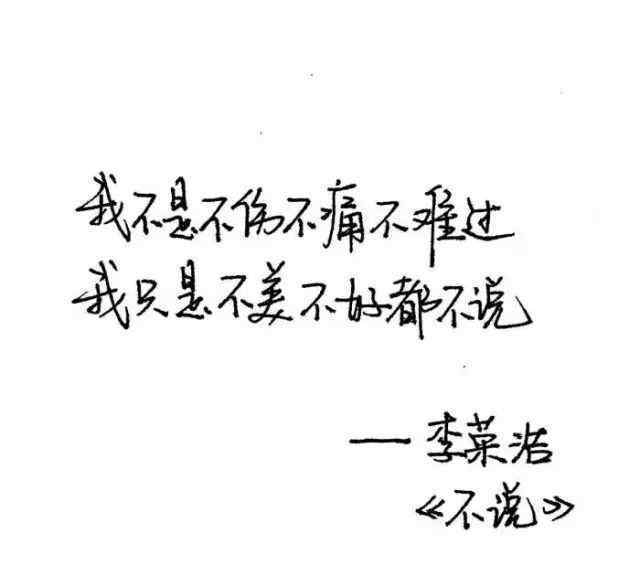 我不是不伤不痛不难过
我只是不美不好都不说
— 李荣浩
《不说》